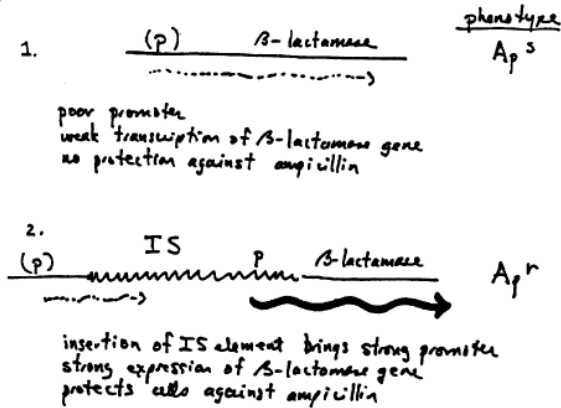 phenotype
1. (p) β-lactamase Ap s
poor promoter
weak transcription of β-lactamase gene
no protection against ampicillin
2.
(p) IS p β-lactamase Ap r
insertion of IS element brings strong promoter
strong expression of β-lactamase gene
protects cells against ampicillin